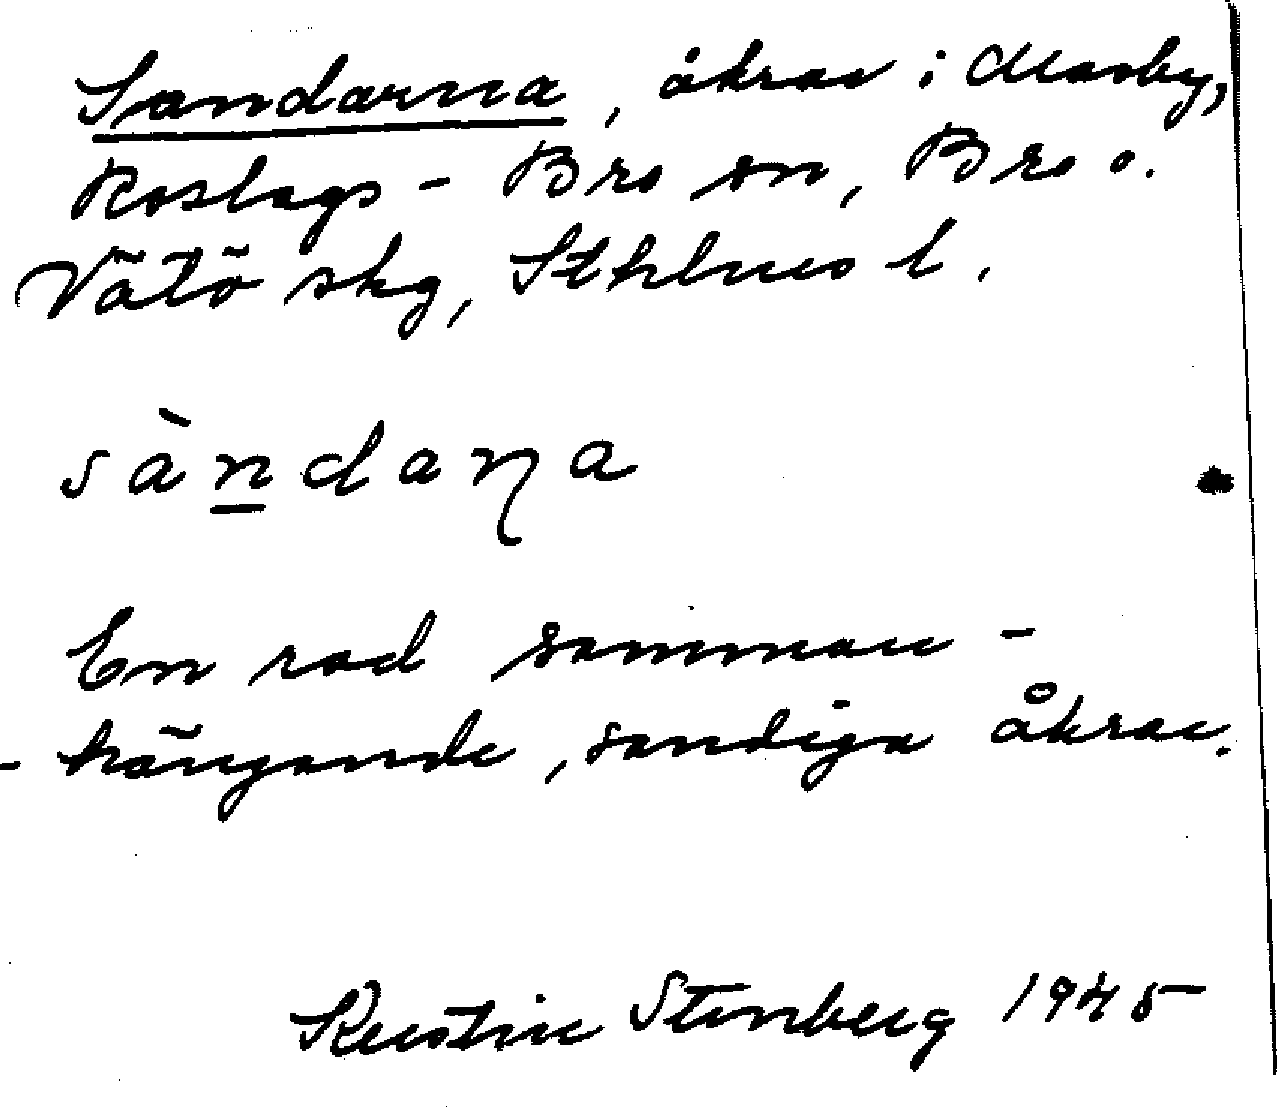 Sandarna, åkrar i Masby,
Roslags-Bro sn, Bro o.
Vätö skg, Sthlms l.
sàn̲daɳa
En rad samman-
-hängande, sandiga åkrar.
Kerstin Stenberg 1945